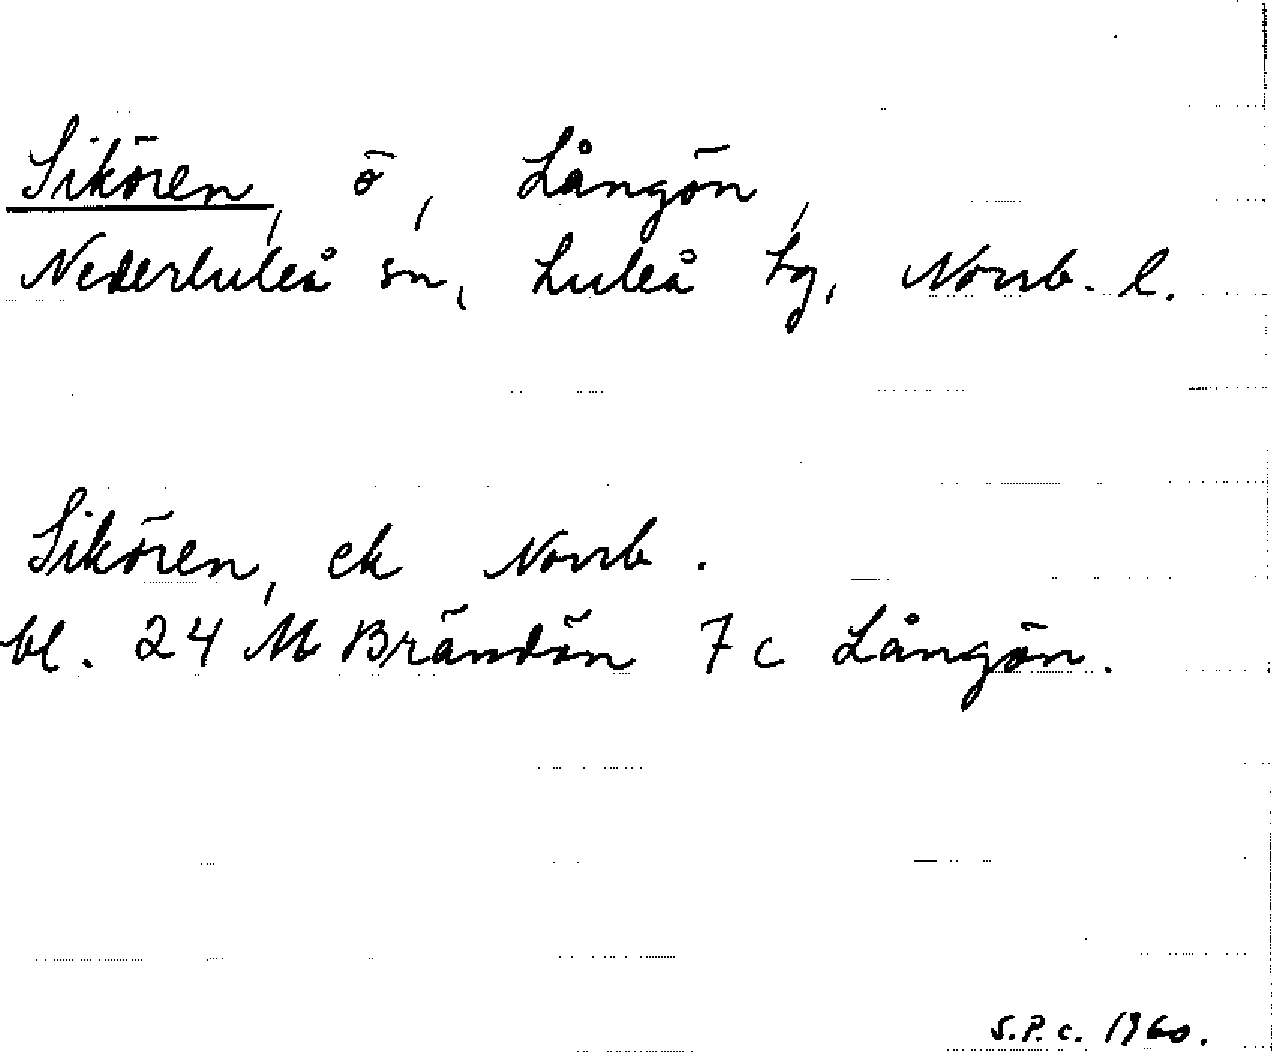 Sikören, ö, Långön,
Nederluleå sn, Luleå tg, Norrb. l.
Sikören, ek Norrb.
bl. 24 M Brändön 7 c Långön.
S.P.C. 1960.